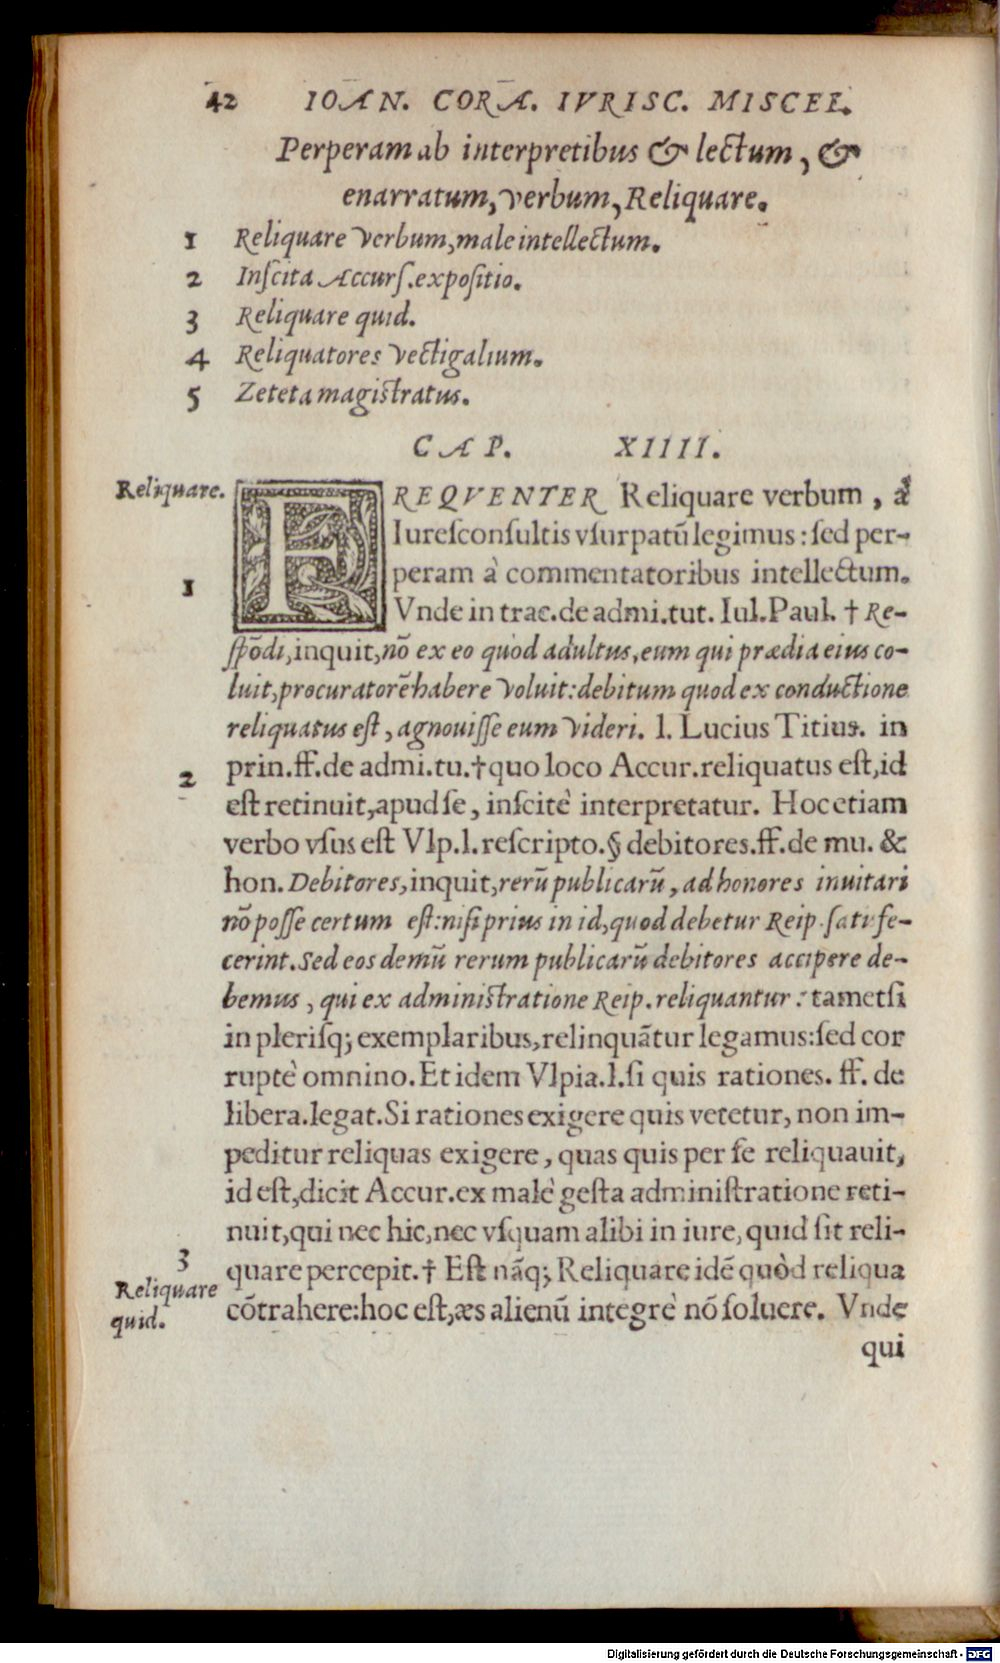 42 IOAN. CORA. IVRISC. MISCEL.
Perperam ab interpretibus & lectum, &
enarratum, verbum, Reliquare.
1 Reliquare verbum, male intellectum.
2 Inſcita Accurſ. expoſitio.
3 Reliquare quid.
4 Reliquatores vectigalium.
5 Zeteta magiſtratus.
CAP. XIIII.
Reliquare.
FREQVENTER Reliquare verbum, à
Iureſconſultis vſurpatū legimus: ſed per-
1
peram à commentatoribus intellectum.
Vnde in trac. de admi. tut. Iul. Paul. † Re-
ſpōdi, inquit, nō ex eo quòd adultus, eum qui prædia eius co-
luit, procuratorē habere voluit: debitum quod ex conductione
reliquatus eſt, agnouiſſe eum videri. l. Lucius Titius. in
2
prin. ff. de admi. tu. † quo loco Accur. reliquatus eſt, id
eſt retinuit, apud ſe, inſcitè interpretatur. Hoc etiam
verbo vſus eſt Vlp. l. reſcripto. § debitores. ff. de mu. &
hon. Debitores, inquit, rerū publicarū, ad honores inuitari
nō poſſe certum eſt: niſi prius in id, quod debetur Reip. ſatiſfe-
cerint. Sed eos demū rerum publicarū debitores accipere de-
bemus, qui ex adminiſtratione Reip. reliquantur: tametſi
in pleriſq; exemplaribus, relinquātur legamus: ſed cor
ruptè omnino. Et idem Vlpia. l. ſi quis rationes. ff. de
libera. legat. Si rationes exigere quis vetetur, non im-
peditur reliquas exigere, quas quis per ſe reliquauit,
id eſt, dicit Accur. ex malè geſta adminiſtratione reti-
nuit, qui nec hic, nec vſquam alibi in iure, quid ſit reli-
3
quare percepit. † Eſt nāq; Reliquare idē quòd reliqua
Reliquare
quid.
cōtrahere: hoc eſt, æs alienū integrè nō ſoluere. Vnde
qui
Digitalisierung gefördert durch die Deutsche Forschungsgemeinschaft - DFG